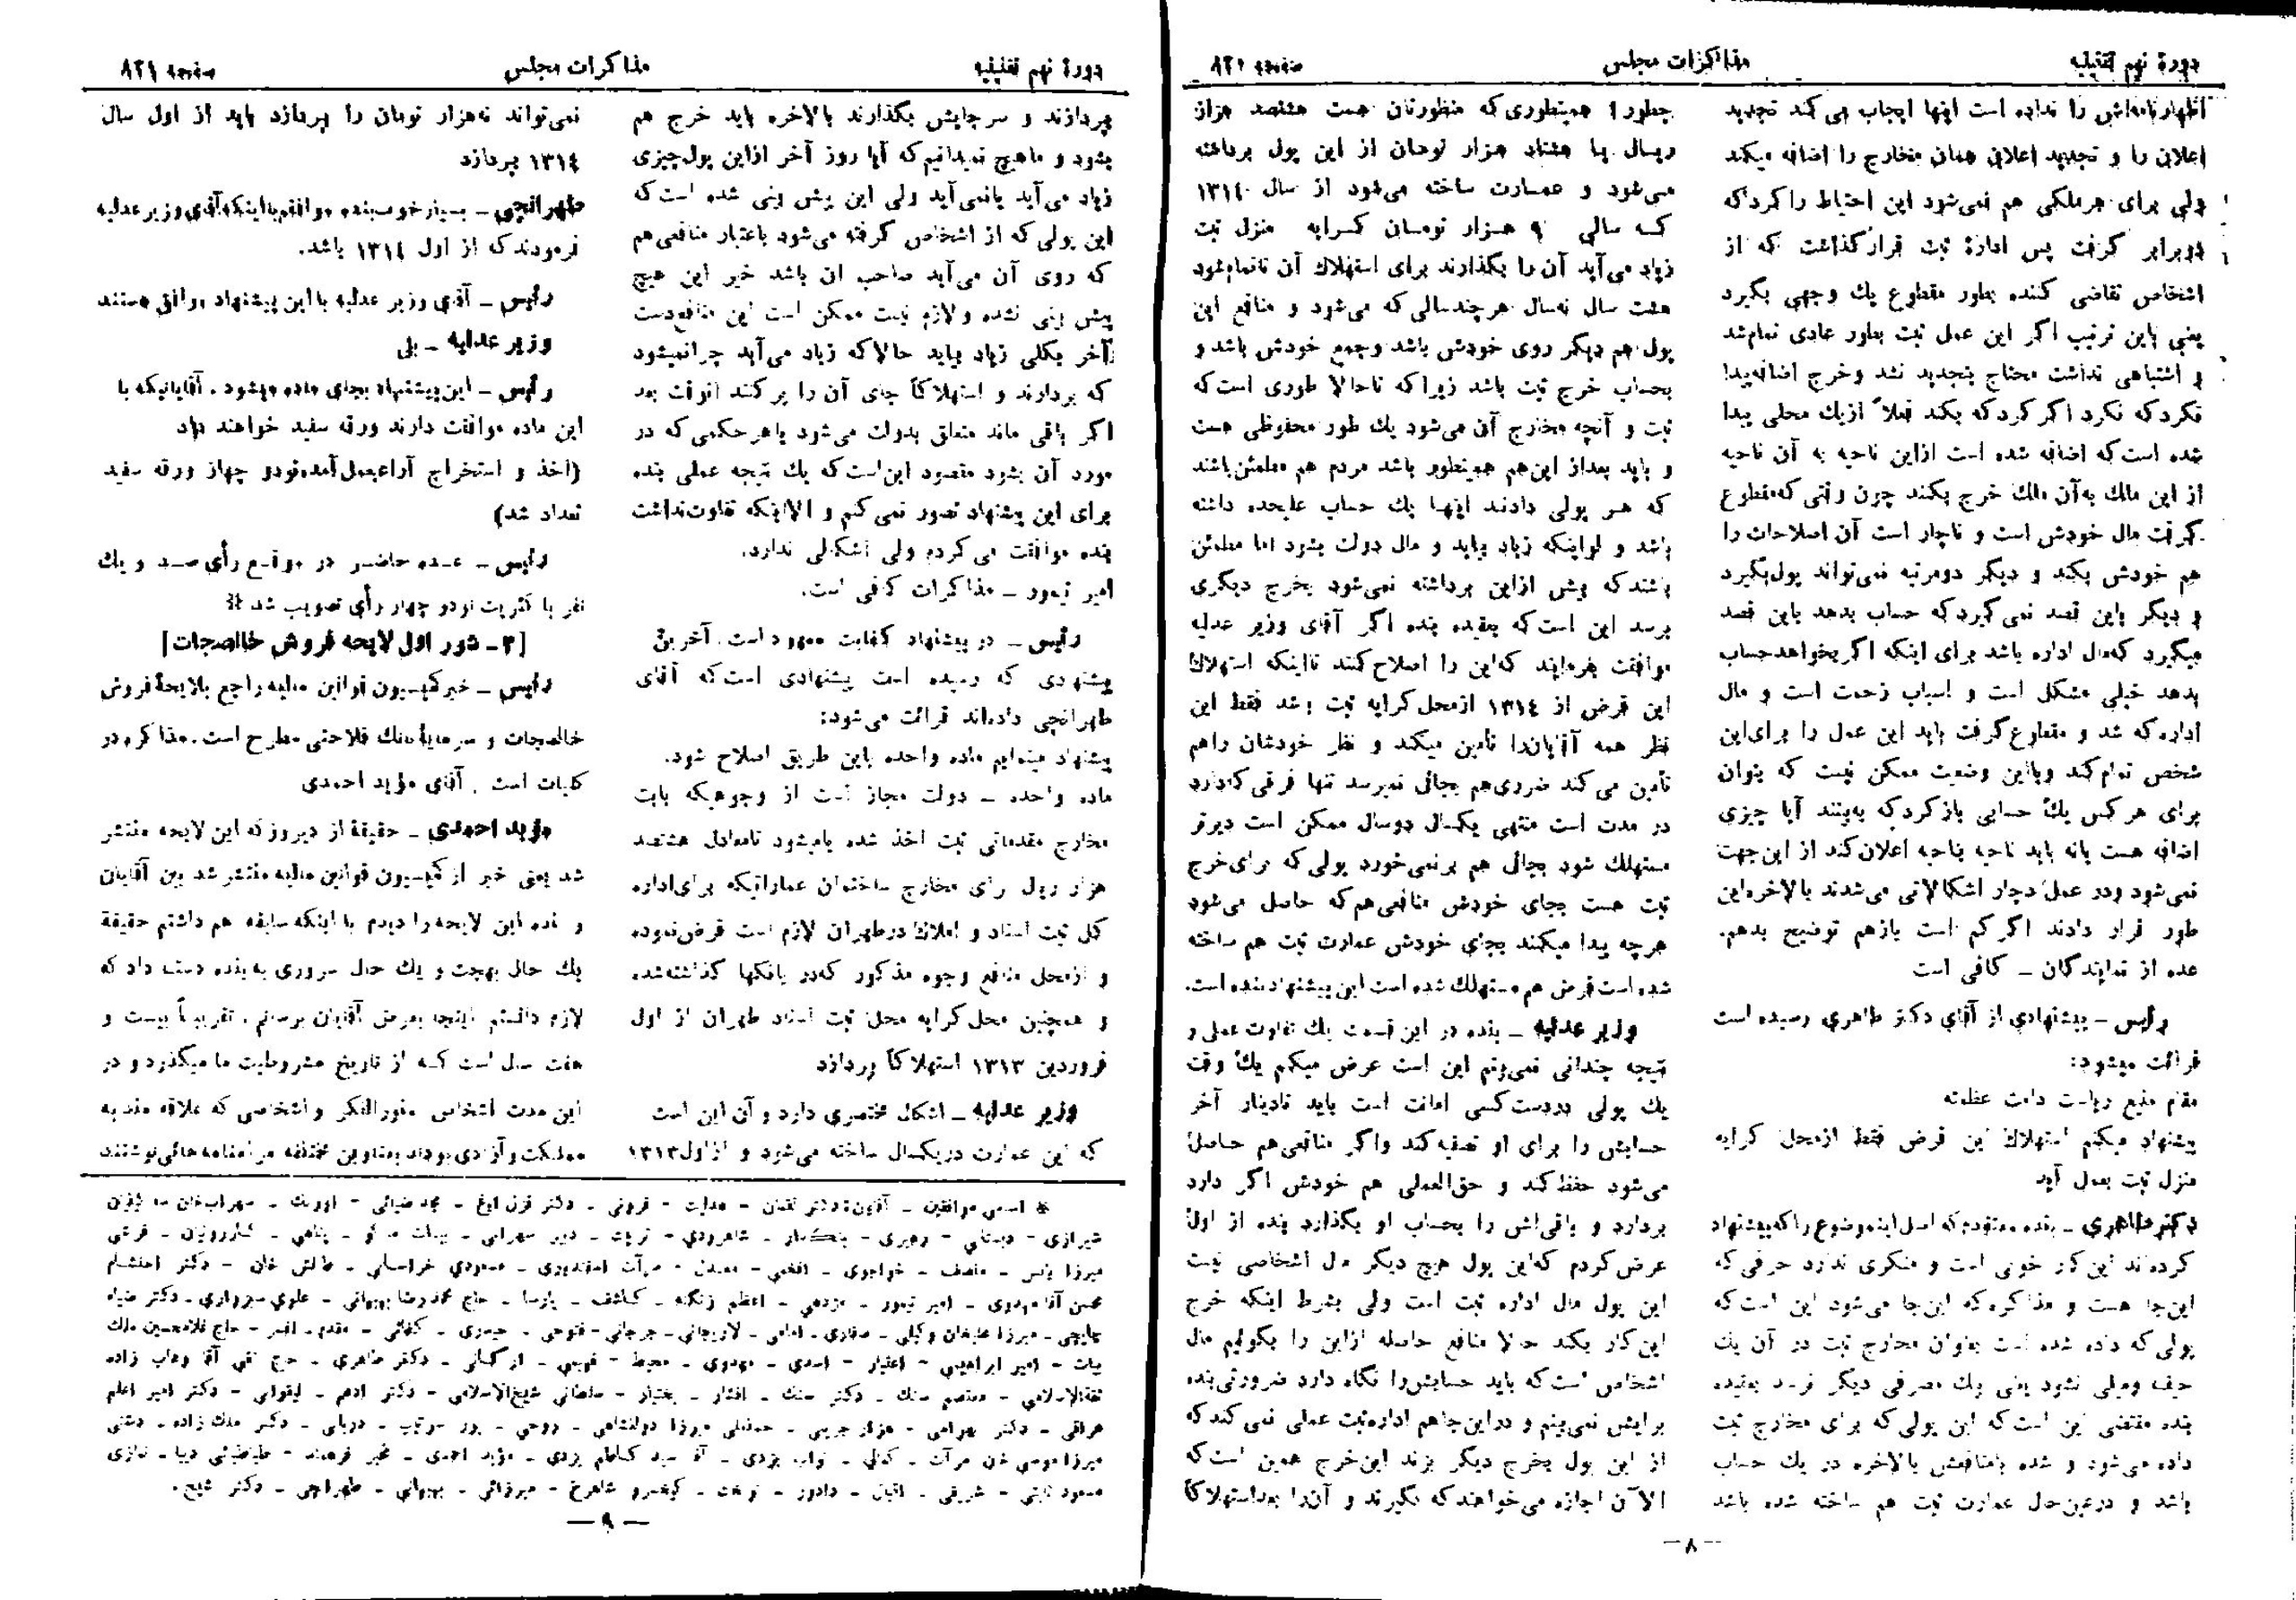 دورهٔ نهم تقنینیه
مذاکرات مجلس
صفحه ۸۲۰
اظهارنامه‌اش را نداده است اینها ایجاب می‌کند تجدید
اعلان را و تجدید اعلان همان مخارج را اضافه میکند
ولی برای هرملکی هم نمی‌شود این احتیاط را کرد که
دو برابر گرفت پس ادارهٔ ثبت قرار گذاشت که از
اشخاص تقاضی کننده بطور مقطوع یك وجهی بگیرد
یعنی باین ترتیب اگر این عمل ثبت بطور عادی تمام شد
و اشتباهی نداشت محتاج بتجدید نشد و خرج اضافه پیدا
نکرد که نکرد اگر کرد که بکند فعلاً از یك محلی پیدا
شده است که اضافه شده است ازاین ناحیه به آن ناحیه
از این مالك به آن مالك خرج بکند چون وقتی که مقطوع
گرفت مال خودش است و ناچار است آن اصلاحات را
هم خودش بکند و دیگر دومرتبه نمی‌تواند پول بگیرد
و دیگر باین قصد نمی گیرد که حساب بدهد باین قصد
میگیرد که مال اداره باشد برای اینکه اگر بخواهد حساب
بدهد خیلی مشکل است و اسباب زحمت است و مال
اداره که شد و مقطوع گرفت باید این عمل را برای این
شخص تمام کند وبااین وضعیت ممکن نیست که بتوان
برای هر کس یك حسابی باز کرد که به‌بینند آیا چیزی
اضافه هست یانه باید ناحیه بناحیه اعلان کند از این جهت
نمی‌شود ودر عمل دچار اشکالاتی می‌شدند بالاخره این
طور قرار دادند اگر کم است بازهم توضیح بدهم.
عده از نمایندگان ـ کافی است
رئیس ـ پیشنهادی از آقای دکتر طاهری رسیده است
قرائت میشود:
مقام منیع ریاست دامت عظمته
پیشنهاد میکنم استهلاك این قرض فقط ازمحل کرایه
منزل ثبت بعمل آید
دکتر طاهری ـ بنده معتقدم که اصل این موضوع را که پیشنهاد
کرده‌اند این کار خوبی است و منکری ندارد حرفی که
این‌جا هست و مذاکره که این‌جا می‌شود این است که
پولی که داده شده است بعنوان مخارج ثبت در آن یك
حیف ومیلی نشود یعنی یك مصرفی دیگر نرسد بعقیده
بنده مقتضی این است که این پولی که برای مخارج ثبت
داده می‌شود و شده بامنافعش بالاخره در یك حساب
باشد و درعین‌حال عمارت ثبت هم ساخته شده باشد
چطور؟ همینطوری که منظورتان هست هشتصد هزار
ریال یا هشتاد هزار تومان از این پول برداشته
می‌شود و عمارت ساخته می‌شود از سال ۱۳۱۴
که سالی ۹ هزار تومان کرایه منزل ثبت
زیاد می‌آید آن را بگذارند برای استهلاك آن تاتمام شود
هشت سال نه سال هر چند سالی که می‌شود و منافع این
پول هم دیگر روی خودش باشد وجمع خودش باشد و
بحساب خرج ثبت باشد زیرا که تاحالا طوری است که
ثبت و آنچه مخارج آن می‌شود یك طور محفوظی هست
و باید بعداز این هم همینطور باشد مردم هم مطمئن باشند
که هر پولی دادند اینها یك حساب علیحده داشته
باشد و لواینکه زیاد بیاید و مال دولت بشود اما مطمئن
باشند که پیش ازاین برداشته نمی‌شود بخرج دیگری
برسد این است که بعقیده بنده اگر آقای وزیر عدلیه
موافقت بفرمایند که این را اصلاح کنند تااینکه استهلاك
این قرض از ۱۳۱۴ ازمحل کرایه ثبت باشد فقط این
نظر همه آقایان را تأمین میکند و نظر خودشان راهم
تأمین می کند ضرری هم بجائی نمیرسد تنها فرقی که دارد
در مدت است منتهی یکسال دوسال ممکن است دیرتر
مستهلك شود بجائی هم برنمی خورد پولی که برای خرج
ثبت هست بجای خودش منافعی هم که حاصل می‌شود
هرچه پیدا میکند بجای خودش عمارت ثبت هم ساخته
شده است قرض هم مستهلك شده است این پیشنهاد بنده است.
وزیر عدلیه ـ بنده در این قسمت یك تفاوت عملی و
نتیجه چندانی نمی‌بینم این است عرض میکنم یك وقت
یك پولی دردست کسی امانت است باید تادینار آخر
حسابش را برای او تصفیه کند واگر منافعی هم حاصل
می‌شود حفظ کند و حق‌العملی هم خودش اگر دارد
بردارد و باقی‌اش را بحساب او بگذارد بنده از اول
عرض کردم که این پول هیچ دیگر مال اشخاصی نیست
این پول مال اداره ثبت است ولی بشرط اینکه خرج
این کار بکند حالا منافع حاصله ازاین را بگوئیم مال
اشخاص است که باید حسابش را نگاه دارد ضرورتی بنده
برایش نمی‌بینم و دراین‌جاهم اداره ثبت عملی نمی کند که
از این پول بخرج دیگر بزند این خرج همین است که
الآن اجازه می‌خواهند که بگیرند و آن را بعد استهلاکاً
ـ ۸ ـ
دورهٔ نهم تقنینیه
مذاکرات مجلس
صفحه ۸۲۱
بپردازند و سر جایش بگذارند بالاخره باید خرج هم
بشود و ماهیچ نمیدانیم که آیا روز آخر ازاین پول چیزی
زیاد می‌آید یانمی‌آید ولی این پیش بینی شده است که
این پولی که از اشخاص گرفته می‌شود باعتبار منافعی هم
که روی آن می‌آید صاحب آن باشد خیر این هیچ
پیش بینی نشده و لازم نیست ممکن است این منافع دست
آخر بکلی زیاد بیاید حالا که زیاد می‌آید چرانمیشود
که بردارند و استهلاکاً جای آن را پر کنند آنوقت بعد
اگر باقی ماند متعلق بدولت می‌شود یاهر حکمی که در
مورد آن بشود مقصود این است که یك نتیجه عملی بنده
برای این پیشنهاد تصور نمی کنم و الااینکه تفاوت نداشت
بنده موافقت می کردم ولی اشکالی ندارد.
امیر تیمور ـ مذاکرات کافی است.
رئیس ـ در پیشنهاد کفایت معهود است. آخرین
پیشنهادی که رسیده است پیشنهادی است که آقای
طهرانچی داده‌اند قرائت می‌شود:
پیشنهاد مینمایم ماده واحده باین طریق اصلاح شود.
ماده واحده ـ دولت مجاز است از وجوهیکه بابت
مخارج مقدماتی ثبت اخذ شده یامیشود تامعادل هشتصد
هزار ریال برای مخارج ساختمان عماراتیکه برای اداره
کل ثبت اسناد و املاك درطهران لازم است قرض نموده
و ازمحل منافع وجوه مذکور که در بانکها گذاشته شده
و همچنین محل کرایه محل ثبت اسناد طهران از اول
فروردین ۱۳۱۳ استهلاکاً بپردازد
وزیر عدلیه ـ اشکال مختصری دارد و آن این است
که این عمارت دریکسال ساخته می‌شود و ازاول ۱۳۱۳
نمی‌تواند نه‌هزار تومان را بپردازد باید از اول سال
۱۳۱۴ بپردازد
طهرانچی ـ بسیار خوب بنده موافقم بااینکه آقای وزیر عدلیه
فرمودند که از اول ۱۳۱۴ باشد.
رئیس ـ آقای وزیر عدلیه با این پیشنهاد موافق هستند
وزیر عدلیه ـ بلی
رئیس ـ این پیشنهاد بجای ماده میشود. آقایانیکه با
این ماده موافقت دارند ورقه سفید خواهند داد
(اخذ و استخراج آراء بعمل آمده نودو چهار ورقه سفید
تعداد شد)
رئیس ـ عده حاضر در موقع رأی صد و یك
نفر با کثریت نودو چهار رأی تصویب شد *
[۳ـ شور اول لایحه فروش خالصجات]
رئیس ـ خبر کمیسیون قوانین مالیه راجع بلایحهٔ فروش
خالصجات و سرمایهٔ بانك فلاحتی مطرح است. مذاکره در
کلیات است. آقای مؤید احمدی
مؤید احمدی ـ حقیقة از دیروز که این لایحه منتشر
شد یعنی خبر از کمیسیون قوانین مالیه منتشر شد بین آقایان
و بنده این لایحه را دیدم با اینکه سابقه هم داشتم حقیقة
یك حال بهجت و یك حال سروری به بنده دست داد که
لازم دانستم اینجا بعرض آقایان برسانم. تقریباً بیست و
هفت سال است که از تاریخ مشروطیت ما میگذرد و در
این مدت اشخاص منورالفکر و اشخاصی که علاقه مند به
مملکت و آزادی بودند بعناوین مختلفه مرامنامه هائی نوشتند
* اسامی موافقین ـ آقایان: دکتر لقمان ـ هدایت ـ قزونی ـ دکتر قزل ایاغ ـ محمد ضیائی ـ اورنك ـ سهراب خان
شیرازی ـ دبستانی ـ رهبری ـ شاهرودی ـ تربیت ـ دبیر سهرابی ـ بیات ـ پناهی ـ کازرونیان ـ قرشی
میرزا یانس ـ منصف ـ خواجوی ـ افخمی ـ معدل ـ مرآت اسفندیاری ـ مسعودی خراسانی ـ طالش خان ـ دکتر احتشام
محسن آقا مهدوی ـ امیر تیمور ـ اعظم زنگنه ـ کاشف ـ پارسا ـ حاج محمدرضا بهبهانی ـ علوی سبزواری ـ دکتر ضیاء
چایچی ـ میرزا علیخان وکیلی ـ صفاری ـ امامی ـ لاریجانی ـ جرجانی ـ فتوحی ـ حیدری ـ کفائی ـ مقدم ـ افسر ـ حاج غلامحسین ملك
بیات ـ امیر ابراهیمی ـ اعتبار ـ اسدی ـ مهدوی ـ محیط ـ فهیمی ـ ارگانی ـ دکتر طاهری ـ حاج تقی آقا وهاب زاده
ثقةالاسلامی ـ معتصم سنك ـ دکتر سنك ـ افشار ـ بختیار ـ سلطانی شیخ‌الاسلامی ـ دکتر ادهم ـ لیقوانی ـ دکتر امیر اعلم
عراقی ـ دکتر بهرامی ـ هزار جریبی ـ حمعلی میرزا دولتشاهی ـ روحی ـ پور سرتیپ ـ دریائی ـ دکتر ملك زاده ـ دشتی
میرزا موسی خان مرآت ـ کمالی ـ نواب یزدی ـ آقا سید کاظم یزدی ـ مؤید احمدی ـ مخبر فرهمند ـ طباطبائی دیبا ـ نمازی
مسعود ثابتی ـ شریفی ـ اقبال ـ دادور ـ نوبخت ـ کیخسرو شاهرخ ـ میرزائی ـ بهبهانی ـ طهرانچی ـ دکتر شیخ.
ـ ۹ ـ